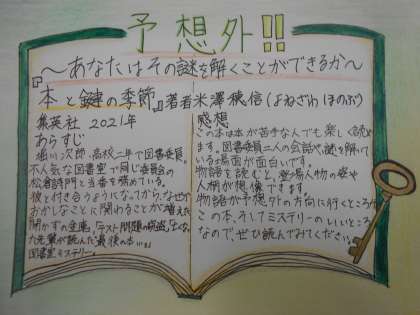 予想外!!
〜あなたはその謎を解くことができるか〜
『本と鍵の季節』著者米澤穂信(よねざわ ほのぶ)
集英社 2021年
あらすじ
堀川次郎、高校二年で図書委員。
不人気な図書室で同じ委員会の
松倉詩門と当番を務めている。
彼と付き合うようになってから、なぜか
おかしなことに関わることが増えた
開かずの金庫、テスト問題の窃盗、亡くなっ
た先輩が読んだ最後の本…。
図書室ミステリー。
感想
この本は本が苦手な人でも楽しく読め
ます。図書委員二人の会話や謎を解いて
いる場面が面白いです。
物語を読むと、登場人物の姿や
人柄が想像できます。
物語が予想外の方向に行くところが
この本、そしてミステリーのいいところ
なので、ぜひ読んでみてください。